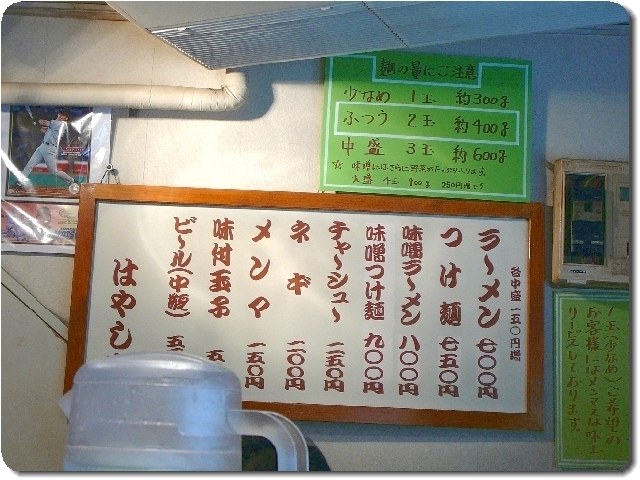 麺の量にご注意
少なめ 1玉 約300g
ふつう 2玉 約400g
中盛 3玉 約600g
大盛 4玉 900g 250円増
各中盛一五〇円増
ラーメン 七〇〇円
つけ麺 七五〇円
味噌ラーメン 八〇〇円
味噌つけ麺 九〇〇円
チャーシュー 二五〇円
ネギ 二〇〇円
メンマ 一五〇円
味付玉子 五
ビール(中瓶) 五
はやし
1玉(少なめ)ご希望の
お客様にはメンマ又は味玉
サービスしております。